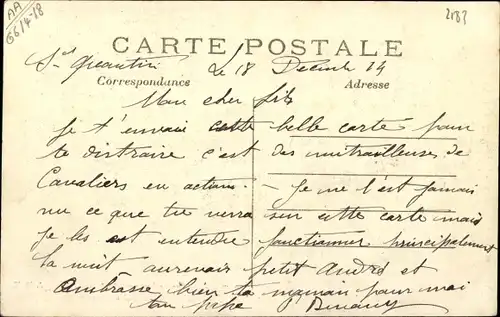 AA
G6/4-18
2182
CARTE POSTALE
St Quentin Le 18 Décemb 14
Correspondance Adresse
Mon cher fils
Je t'envoie cette belle carte pour
te distraire c'est des mitrailleuse de
Cavaliers en actions. Je ne l'est jamais
vu ce que tu verra sur cette carte mais
je les est entendre fonctionner principalement
la nuit aurevoir petit André et
Ambrasse bien ta maman pour moi
ton